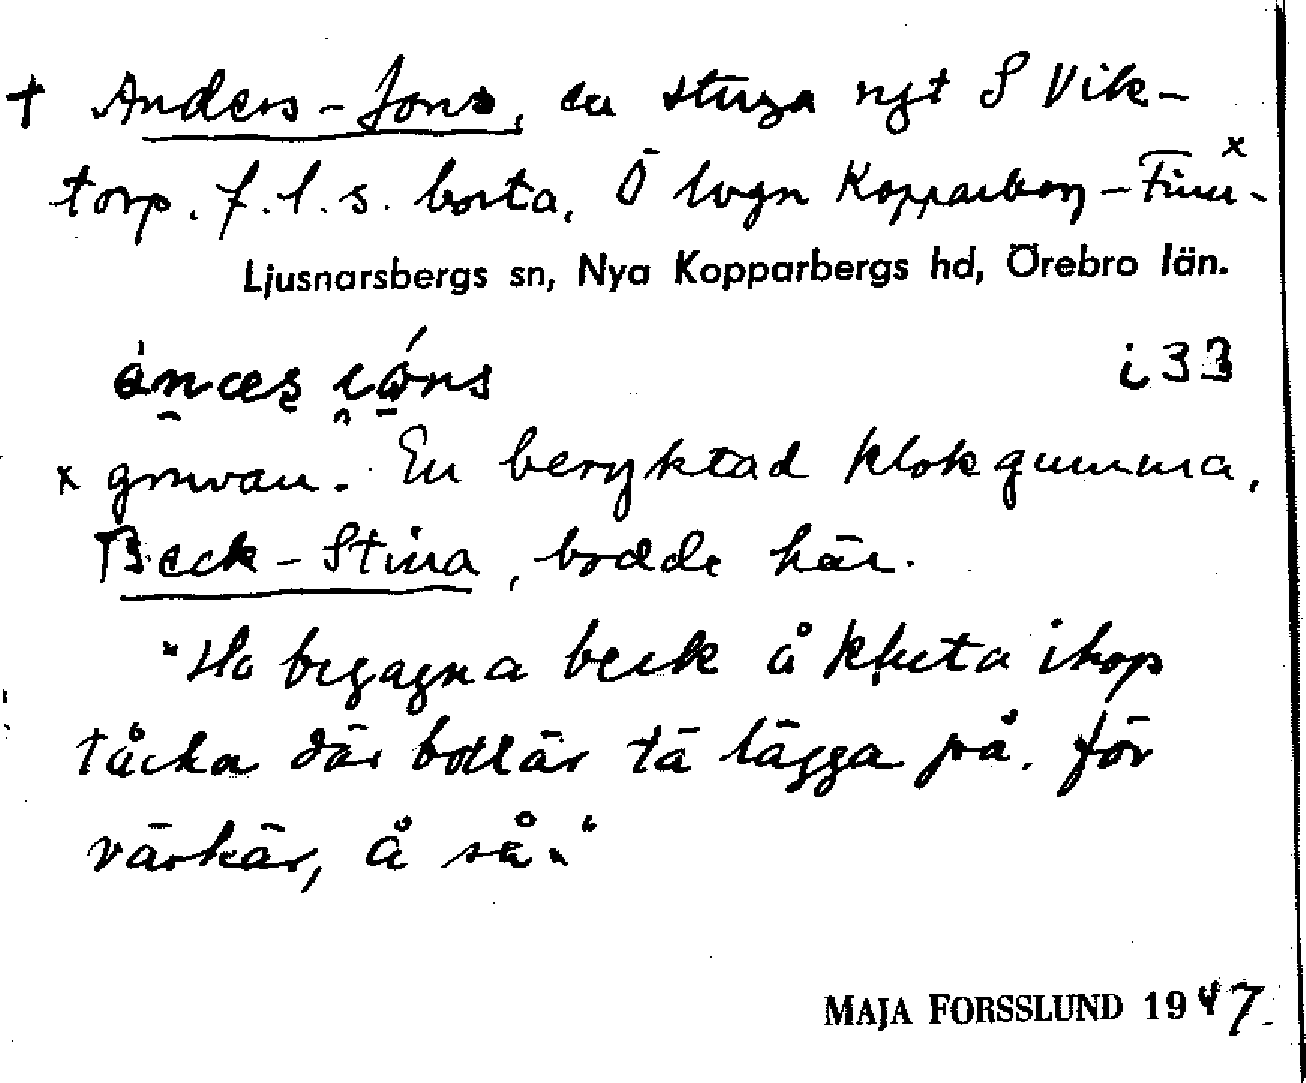 † Anders-Jons, en stuga ngt S Vik-
torp. f.l.s. borta, Ö lvgn Kopparberg-Finn- x
Ljusnarsbergs sn, Nya Kopparbergs hd, Örebro län.
i 33
x gruvan. En beryktad klokgumma,
Beck-Stina, bodde här.
"Ho begagna beck å kleta ihop
tåcka där bollär tä lägga på. för
värkär, å så."
MAJA FORSSLUND 1947